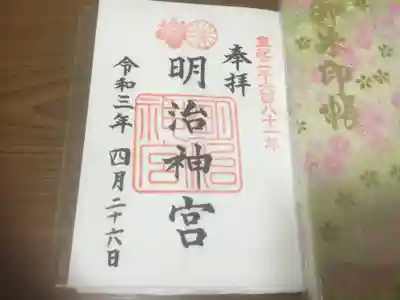 皇紀二千六百八十一年
奉拝
明治神宮
明治神宮
令和三年 四月二十六日
御朱印帳